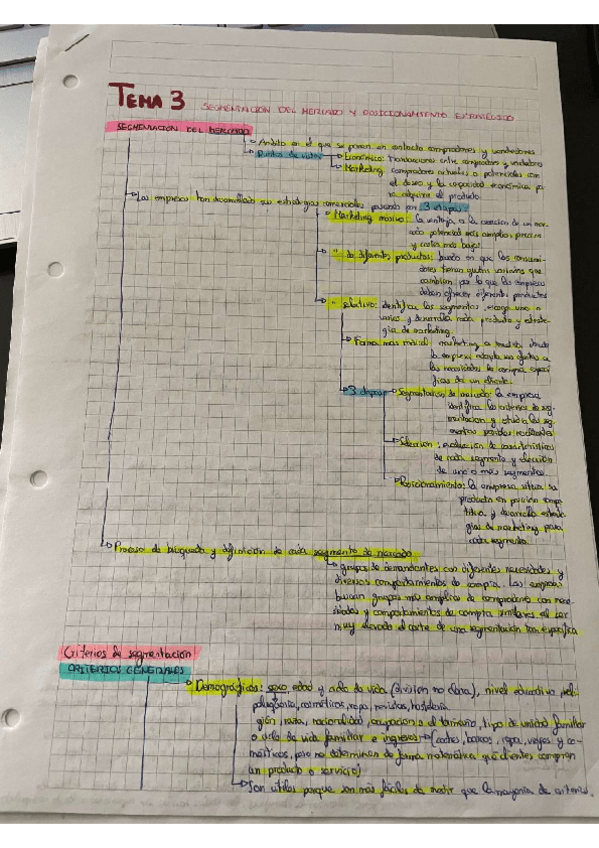 TEMA 3 SEGMENTACIÓN DEL MERCADO Y POSICIONAMIENTO ESTRATÉGICO
SEGMENTACIÓN DEL MERCADO
Ámbito en el que se ponen en contacto compradores y vendedores
Puntos de vista Económico: transacciones entre compradores y vendedores
Marketing: compradores actuales o potenciales con
el deseo y la capacidad económica pa
ra adquirir el producto
Las empresas han desarrollado sus estrategias comerciales pasando por 3 etapas:
Marketing masivo: la ventaja es la creación de un mer-
cado potencial más amplio, precios
y costes más bajos.
" de diferentes productos: basado en que los consumi-
dores tienen gustos variados que
cambian, por lo que las empresas
deben ofrecer diferentes productos
" selectivo: identificar los segmentos, escoger uno o
varios y desarrollar cada producto y estrate-
gia de marketing.
Forma más radical: marketing a medida, donde
la empresa adapta sus ofertas a
las necesidades de compra especí
ficas de un cliente.
3 etapas Segmentación de mercado: la empresa
identifica los criterios de seg
mentación y estudia los seg
mentos
Selección: evaluación de características
de cada segmento y elección
de uno o más segmentos.
Posicionamiento: la empresa sitúa su
producto en posición compe
titiva y desarrolla estrate
gias de marketing para
cada segmento.
Proceso de búsqueda y definición de cada segmento de mercado
grupos de demandantes con diferentes necesidades y
diversos comportamientos de compra. Las empresas
buscan grupos más amplios de compradores con nece
sidades y comportamientos de compra similares al ser
muy elevado el coste de una segmentación tan específica
Criterios de segmentación
CRITERIOS GENERALES
Demográficos: sexo, edad y ciclo de vida (división no clara), nivel educativo, reli
peluquería, cosméticos, ropa, revistas, hostelería
gión, raza, nacionalidad, ocupación o el tamaño, tipo de unidad familiar
o ciclo de vida familiar e ingresos (coches, barcos, ropa, viajes y cos
méticos, pero no determinan de forma matemática qué clientes compran
un producto o servicio)
Son útiles porque son más fáciles de medir que la mayoría de criterios.